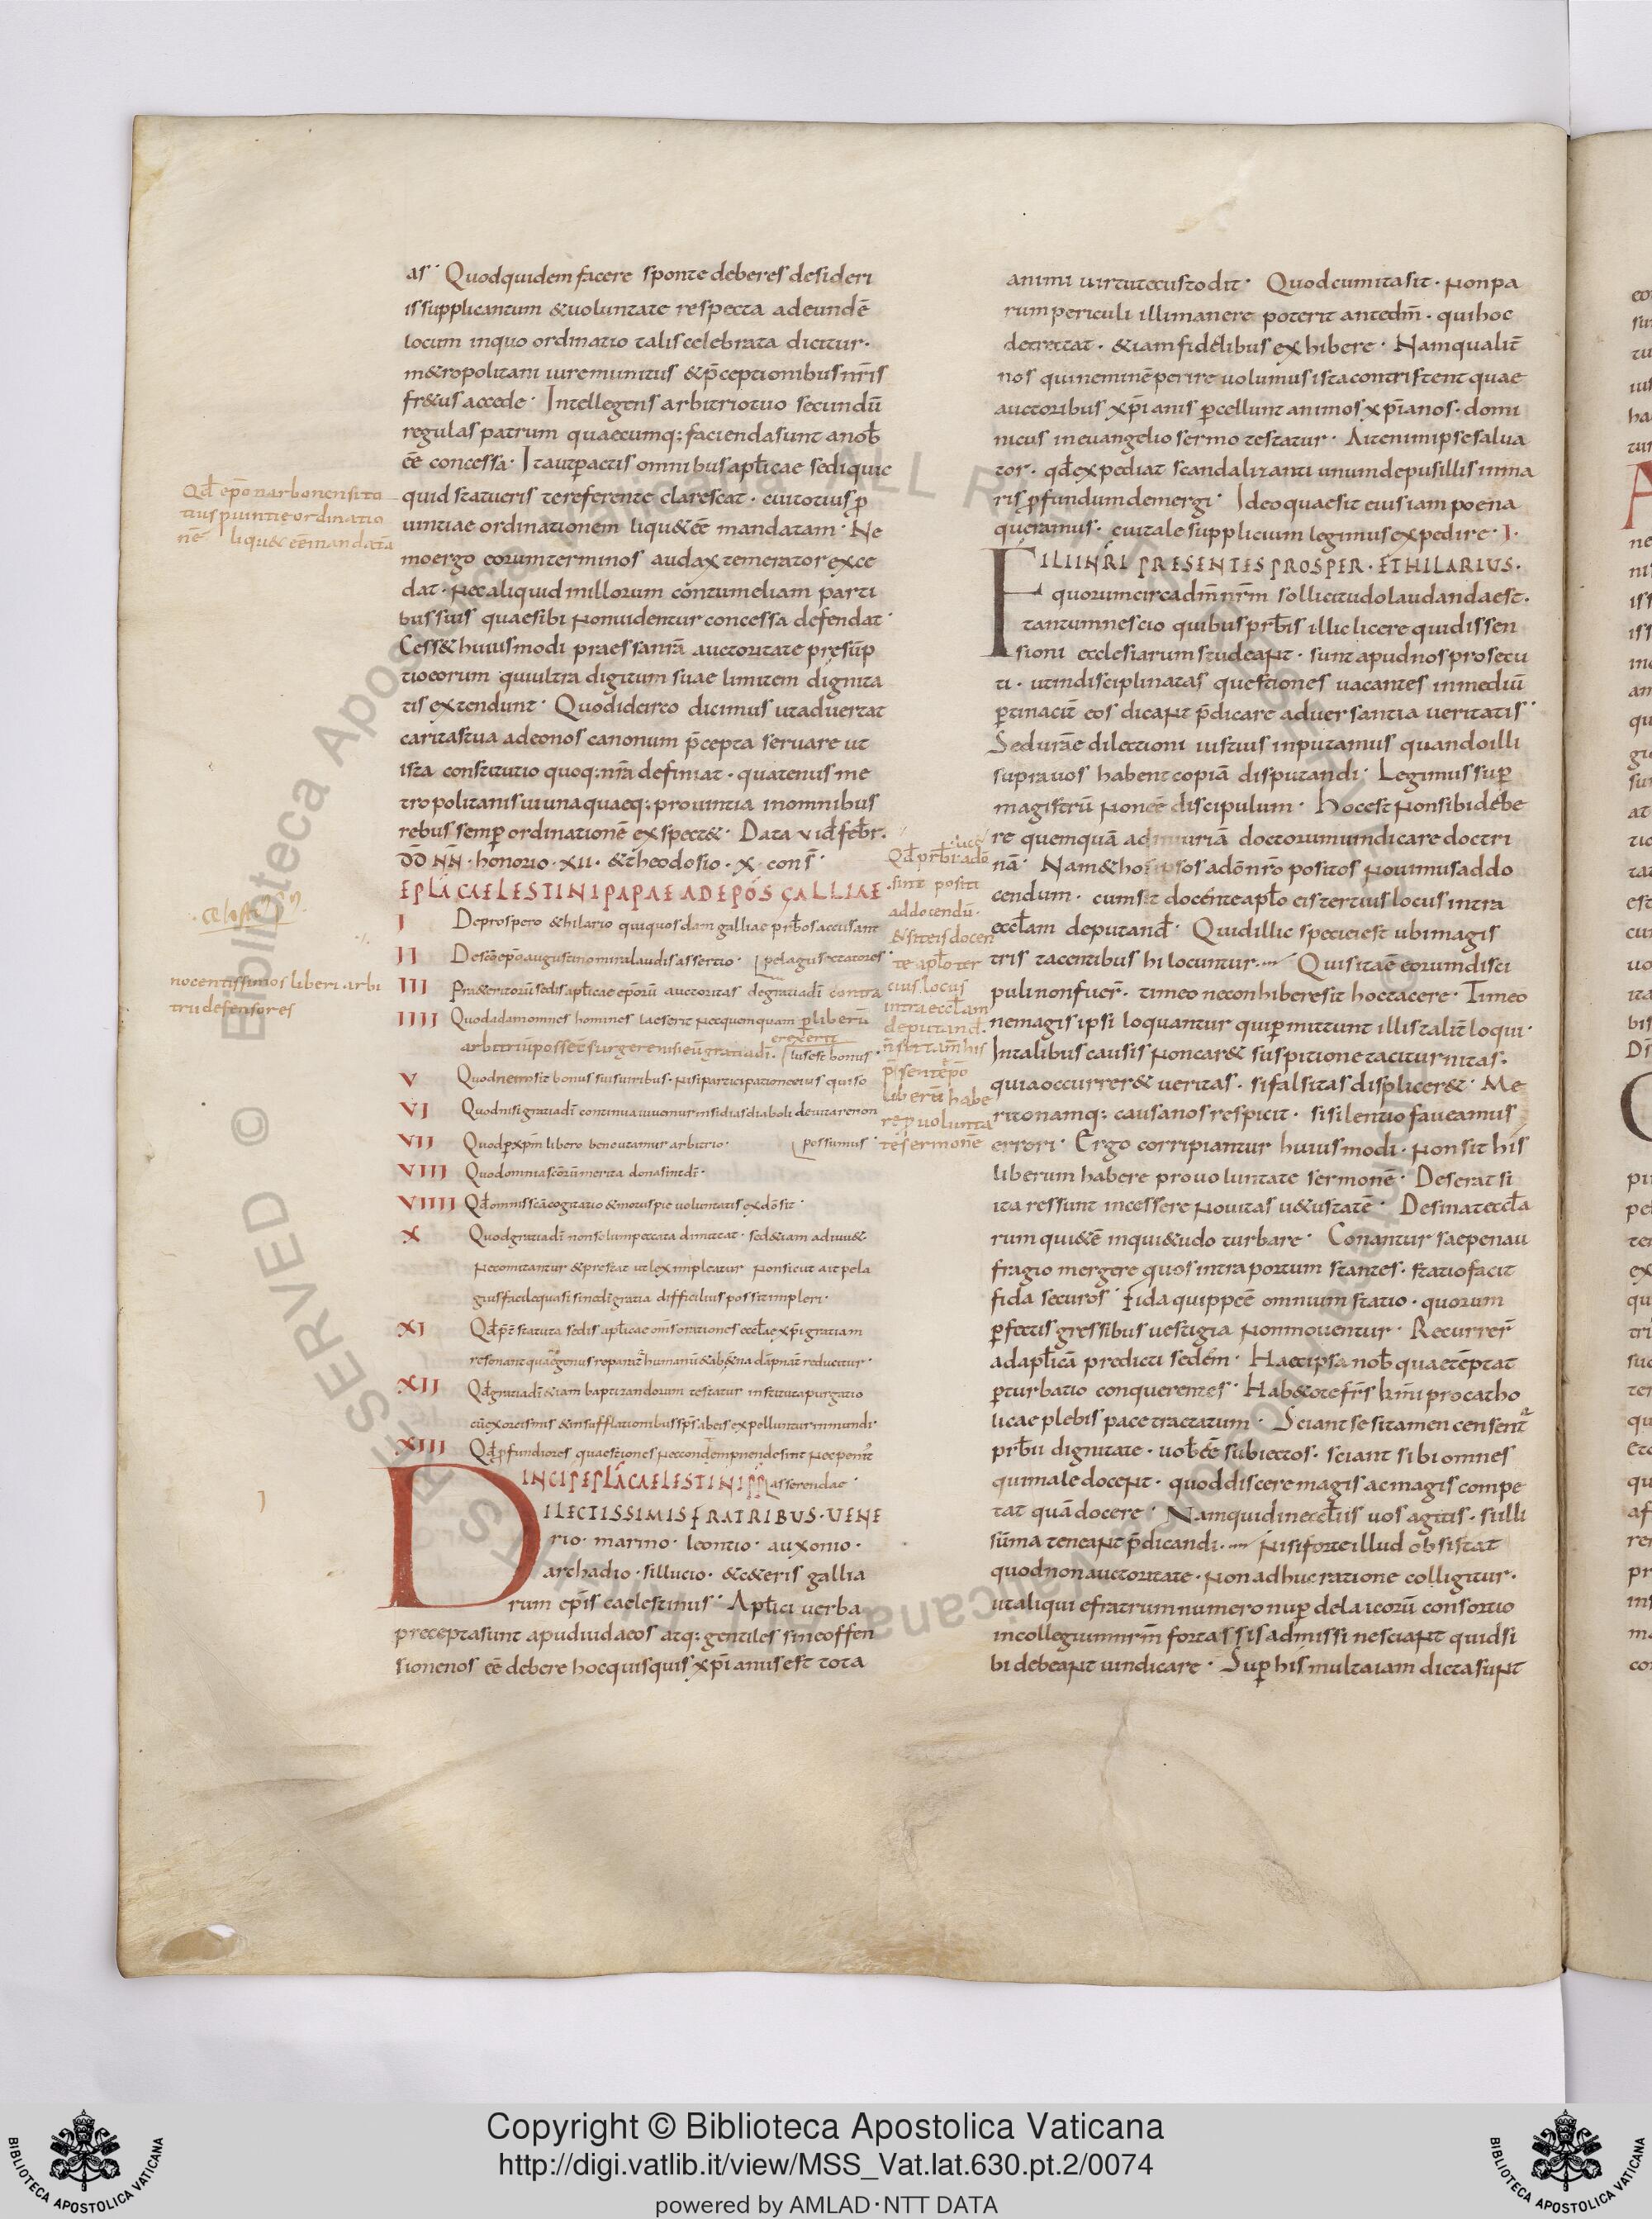 as· Quodquidem facere sponte deberes desideri
is supplicantum & uoluntate respecta ad eundē
locum in quo ordinatio talis celebrata dicitur·
m&ropolitani iure munitus & p̄ceptionibus nr̄is
fr&us accede· Intellegens arbitrio tuo secundū
regulas patrum quaecumq; facienda sunt a nob̄
ēē concessa· Ita ut peractis omnibus apl̄icae sedi quic
quid statueris te referente clarescat· cui totius p
uintiae ordinationem liqu& ēē mandatam· Ne
mo ergo eorum terminos audax temerator exce
dat· Nec aliquid in illorum contumeliam parti
bus suis quae sibi non uidentur concessa defendat·
Cess& huiusmodi praessa nr̄a auctoritate presūp
tio eorum qui ultra digitum suae limitem dignita
tis extendunt· Quod idcirco dicimus ut aduertat
caritas tua adeo nos canonum p̄cepta seruare ut
ista constitutio quoq; nr̄a definiat· quatenus me
tropolitani sui unaquaeq; prouintia in omnibus
rebus semp ordinationē expect&· Data VI id feb̄r·
D̄D̄ N̄N̄· honorio· XII· & theodosio· X· cons̄·
EPLĀ CAELESTINI PAPAE AD EPOS GALLIAE
I De prospero & hilario qui quosdam galliae prb̄os accusant
II De sc̄o ep̄o augustino mira laudis assertio· pelagii sectatores·
III Pra&eritorū sedis apl̄icae ep̄orū auctoritas de gratia dī contra
IIII Quod adam omnes homines laeserit Nec quemquam p liberū
arbitriū posse surgere nisi eū gratia dī erexerit· ius est bonus·
V Quod nemo sit bonus suis uiribus· Nisi participatione eius qui so
VI Quod nisi gratia dī continua iuuemur insidias diaboli deuitare non
VII Quod p xp̄m libero bene utamur arbitrio· possumus·
VIII Quod omnia sc̄orū merita dona sint dī·
VIIII Qd̄ omnis sc̄a cogitatio & motus pie uoluntatis ex dō sit·
X Quod gratia dī non solum peccata dimittat· sed &iam adiuu&
Ne comitantur & prestat ut lex impleatur Non sicut ait pela
gius facile quasi sine dī gratia difficilius possit impleri·
XI Qd̄ p̄t statuta sedis apl̄icae om̄s orationes eccl̄ae xp̄i gratiam
resonant qua genus reparat humanū & ab &erna dāpnat reducitur·
XII Qd̄ gratia dī &iam baptizandorum testatur instituta purgatio
cū exorcismis & insufflationibus sp̄s ab eis expelluntur inmundi·
XIII Qd̄ pfundiores quaestiones Nec condempnende sint Nec penit
INCIP EPLĀ CAELESTINI PP asserendae·
DILECTISSIMIS FRATRIBUS· UENE
rio· marino· leontio· auxonio·
archadio· sillucio· & c&eris gallia
rum ep̄is caelestinus· Apl̄ici uerba
precepta sunt apud iudaeos atq; gentiles sine offen
sione nos ēē debere hoc quisquis xp̄ianus est tota
Qd̄ ep̄o narbonensi to
tius puintię ordinatio
nē liqu& ēē mandatā
nocentissimos liberi arbi
trii defensores
Qd̄ prb̄i adō
sint positi
ad docendū·
& sit eis docen
te apl̄o ter
cius locus
intra eccl̄am
deputand·
n̄ sit tam̄ his
p̄sente ep̄o
liberū habe
re p uolunta
te sermonē
animi uirtute custodit· Quod cum ita sit· Non pa
rum periculi illi manere poterit ante dm̄· qui hoc
detrectat· &iam fidelibus exhibere· Nam qualit̄
nos qui neminē perire uolumus ista contristent quae
auctoribus xp̄ianis pcellunt animos xp̄ianos· domi
nicus in euangelio sermo testatur· Ait enim ipse salua
tor· qd̄ expediat scandalizanti unum de pusillis in ma
ris pfundum demergi· Ideo quae sit eius iam poena
queramus· cui tale supplicium legimus expedire· I·
FILII NR̄I PRESENTES PROSPER· ET HILARIUS·
quorum circa dm̄ nrm̄ sollicitudo laudanda est·
tantum nescio quibus prb̄is illic licere qui dissen
sioni ecclesiarum studeant· sunt apud nos prosecu
ti· ut indisciplinatas questiones uacantes in mediū
ptinacit̄ eos dicant p̄dicare aduersantia ueritatis·
Sed ur̄ae dilectioni iustius inputamus quando illi
supra uos habent copiā disputandi· Legimus sup
magistrū non ēē discipulum· Hoc est Non sibi debe
re quemquā ad iniuriā doctorum uindicare doctri
nā· Nam & hos ipsos a dō nr̄o positos Nouimus ad do
cendum· cum sit docente apl̄o eis tertius locus intra
eccl̄am deputand̄· Quid illic spei est ubi magis
tris tacentibus hi locuntur· Qui si ita ē eorum disci
puli non fuer̄· timeo ne conhibere sit hoc tacere· Timeo
ne magis ipsi loquantur qui pmittunt illis talit̄ loqui·
In talibus causis Non car& suspitione taciturnitas·
quia occurrer& ueritas· si falsitas displicer&· Me
rito namq; causa nos respicit· si silentio faueamus
errori· Ergo corripiantur huiusmodi· Non sit his
liberum habere pro uoluntate sermonē· Deserat si
ita res sunt incessere Nouitas u&ustatē· Desinat eccl̄a
rum qui&ē inqui&udo turbare· Conantur saepe nau
fragio mergere quos intra portum stantes· statio facit
fida securos· fida quippe ē omnium statio· quorum
pfectis gressibus uestigia Non mouentur· Recurrer̄
ad apl̄icā predicti sedem· Haec ipsa nob̄ quae tēptat
pturbatio conquerentes· Hab&ote fr̄s km̄i pro catho
licae plebis pace tractatum· Sciant se si tamen censent
prb̄ii dignitate· uob̄ ēē subiectos· sciant sibi omnes
qui male docent· quod discere magis ac magis compe
tat quā docere· Nam quid in eccl̄iis uos agitis· si illi
sūma teneant p̄dicandi· Nisi forte illud obsistat
quod non auctoritate· Non adhuc ratione colligitur·
ut aliqui e fratrum numero nup de laicorū consortio
in collegium nrm̄ fortassis admissi nesciant quid si
bi debeant uindicare· Sup his multa iam dicta sunt
Copyright © Biblioteca Apostolica Vaticana
http://digi.vatlib.it/view/MSS_Vat.lat.630.pt.2/0074
powered by AMLAD·NTT DATA
BIBLIOTECA APOSTOLICA VATICANA
BIBLIOTECA APOSTOLICA VATICANA